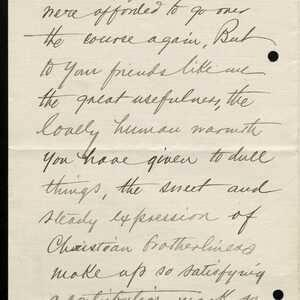 were afforded to go over
the course again, But
to your friends like me
the great usefulness, the
lovely human warmth
you have given to dull
things, the sweet and
steady expression of
Christian brotherliness
make up so satisfying
a